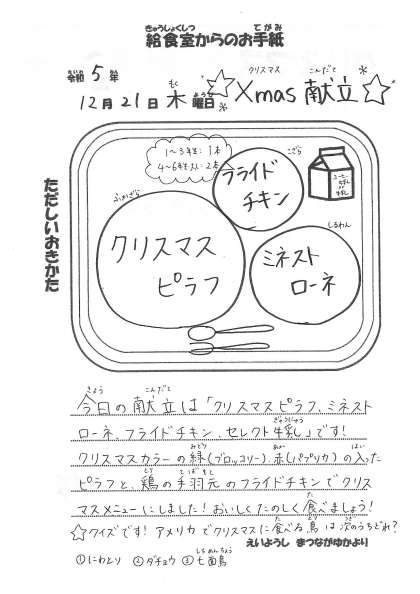 給食室からのお手紙
令和5年
12月21日木曜日 ☆Xmas献立☆
ただしいおきかた
1〜3年生:1本
4〜6年生:2本
こざら
フライド
チキン
ふかざら
クリスマス
ピラフ
しるわん
ミネスト
ローネ
今日の献立は「クリスマスピラフ、ミネスト
ローネ、フライドチキン、セレクト牛乳」です!
クリスマスカラーの緑(ブロッコリー)、赤(パプリカ)の入った
ピラフと、鶏の手羽元のフライドチキンでクリス
マスメニューにしました!おいしくたのしく食べましょう!
☆クイズです!アメリカでクリスマスに食べる鳥は次のうちどれ?
えいようし まつながゆかより
①にわとり ②ダチョウ ③七面鳥